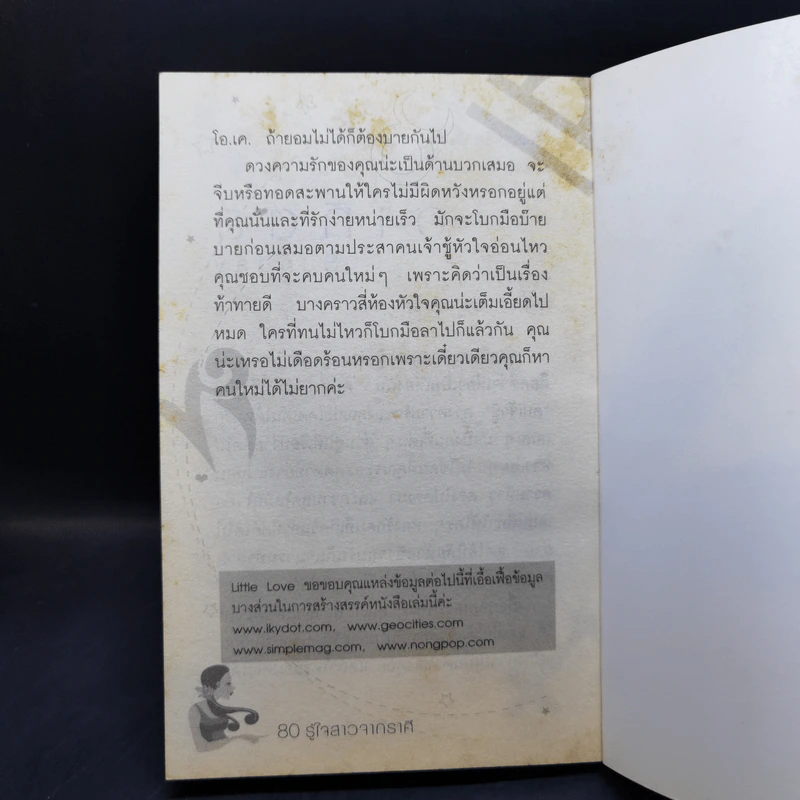 โอ.เค. ถ้ายอมไม่ได้ก็ต้องบายกันไป
ดวงความรักของคุณน่ะเป็นด้านบวกเสมอ จะ
จีบหรือทอดสะพานให้ใครไม่มีผิดหวังหรอกอยู่แต่
ที่คุณนั้นและที่รักง่ายหน่ายเร็ว มักจะโบกมือบ๊าย
บายก่อนเสมอตามประสาคนเจ้าชู้หัวใจอ่อนไหว
คุณชอบที่จะคบคนใหม่ๆ เพราะคิดว่าเป็นเรื่อง
ท้าทายดี บางคราวสี่ห้องหัวใจคุณน่ะเต็มเอี้ยดไป
หมด ใครที่ทนไม่ไหวก็โบกมือลาไปก็แล้วกัน คุณ
น่ะเหรอไม่เดือดร้อนหรอกเพราะเดี๋ยวเดียวคุณก็หา
คนใหม่ได้ไม่ยากค่ะ
Little Love ขอขอบคุณแหล่งข้อมูลต่อไปนี้ที่เอื้อเฟื้อข้อมูล
บางส่วนในการสร้างสรรค์หนังสือเล่มนี้ค่ะ
www.ikydot.com, www.geocities.com
www.simplemag.com, www.nongpop.com
80 รู้ใจสาวจากราศี